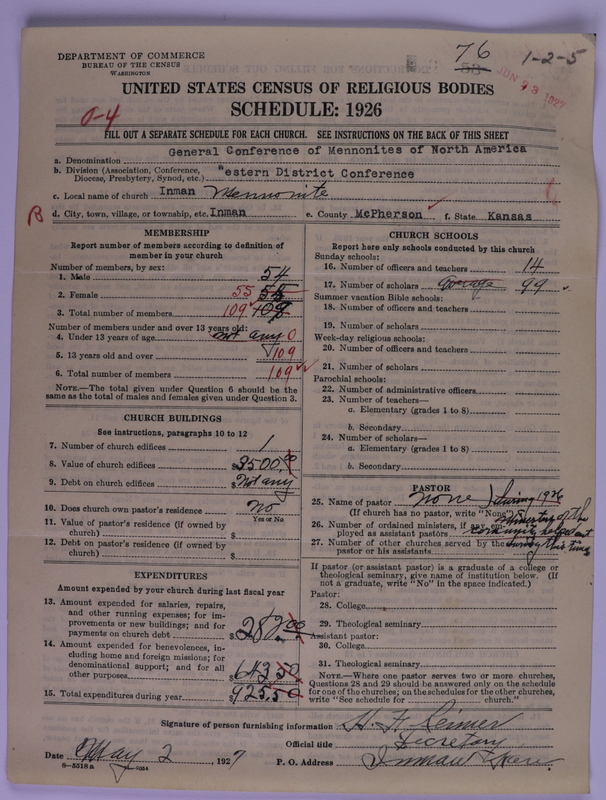 DEPARTMENT OF COMMERCE
BUREAU OF THE CENSUS
WASHINGTON
76
53
1-2-5
UNITED STATES CENSUS OF RELIGIOUS BODIES
SCHEDULE: 1926
0-4
FILL OUT A SEPARATE SCHEDULE FOR EACH CHURCH. SEE INSTRUCTIONS ON THE BACK OF THIS SHEET
a. Denomination General Conference of Mennonites of North America
b. Division (Association, Conference, Diocese, Presbytery, Synod, etc.) Western District Conference
c. Local name of church Inman Mennonite
B d. City, town, village, or township, etc. Inman e. County McPherson f. State Kansas
MEMBERSHIP
Report number of members according to definition of
member in your church
Number of members by sex:
1. Male 54
2. Female 55
3. Total number of members 109
Number of members under and over 13 years old:
4. Under 13 years of age not any 0
5. 13 years old and over 109
6. Total number of members 109
NOTE.—The total given under Question 6 should be the
same as the total of males and females given under Question 3.
CHURCH BUILDINGS
See instructions, paragraphs 10 to 12
7. Number of church edifices 1
8. Value of church edifices $3500.00
9. Debt on church edifices $Not any
10. Does church own pastor's residence? No
Yes or No
11. Value of pastor's residence (if owned by
church) $
12. Debt on pastor's residence (if owned by
church) $
EXPENDITURES
Amount expended by your church during last fiscal year
13. Amount expended for salaries, repairs,
and other running expenses; for im-
provements or new buildings; and for
payments on church debt $282.00
14. Amount expended for benevolences, in-
cluding home and foreign missions; for
denominational support; and for all
other purposes $643.50
15. Total expenditures during year $925.50
CHURCH SCHOOLS
Report here only schools conducted by this church
Sunday schools:
16. Number of officers and teachers 14
17. Number of scholars average 99
Summer vacation Bible schools:
18. Number of officers and teachers
19. Number of scholars
Week-day religious schools:
20. Number of officers and teachers
21. Number of scholars
Parochial schools:
22. Number of administrative officers
23. Number of teachers—
a. Elementary (grades 1 to 8)
b. Secondary
24. Number of scholars—
a. Elementary (grades 1 to 8)
b. Secondary
PASTOR
25. Name of pastor None) during 1926
(If church has no pastor, write "None")
26. Number of ordained ministers, if any, em-
ployed as assistant pastors
27. Number of other churches served by the
pastor or his assistants
during this time
If pastor (or assistant pastor) is a graduate of a college or
theological seminary, give name of institution below. (If
not a graduate, write "No" in the space indicated.)
Pastor:
28. College
29. Theological seminary
Assistant pastor:
30. College
31. Theological seminary
NOTE.—Where one pastor serves two or more churches,
Questions 28 and 29 should be answered only on the schedule
for one of the churches; on the schedules for the other churches,
write "See schedule for church."
Signature of person furnishing information H. F. Reimer
Official title Secretary
Date May 2, 1927 P. O. Address Inman Kans
8-5518a